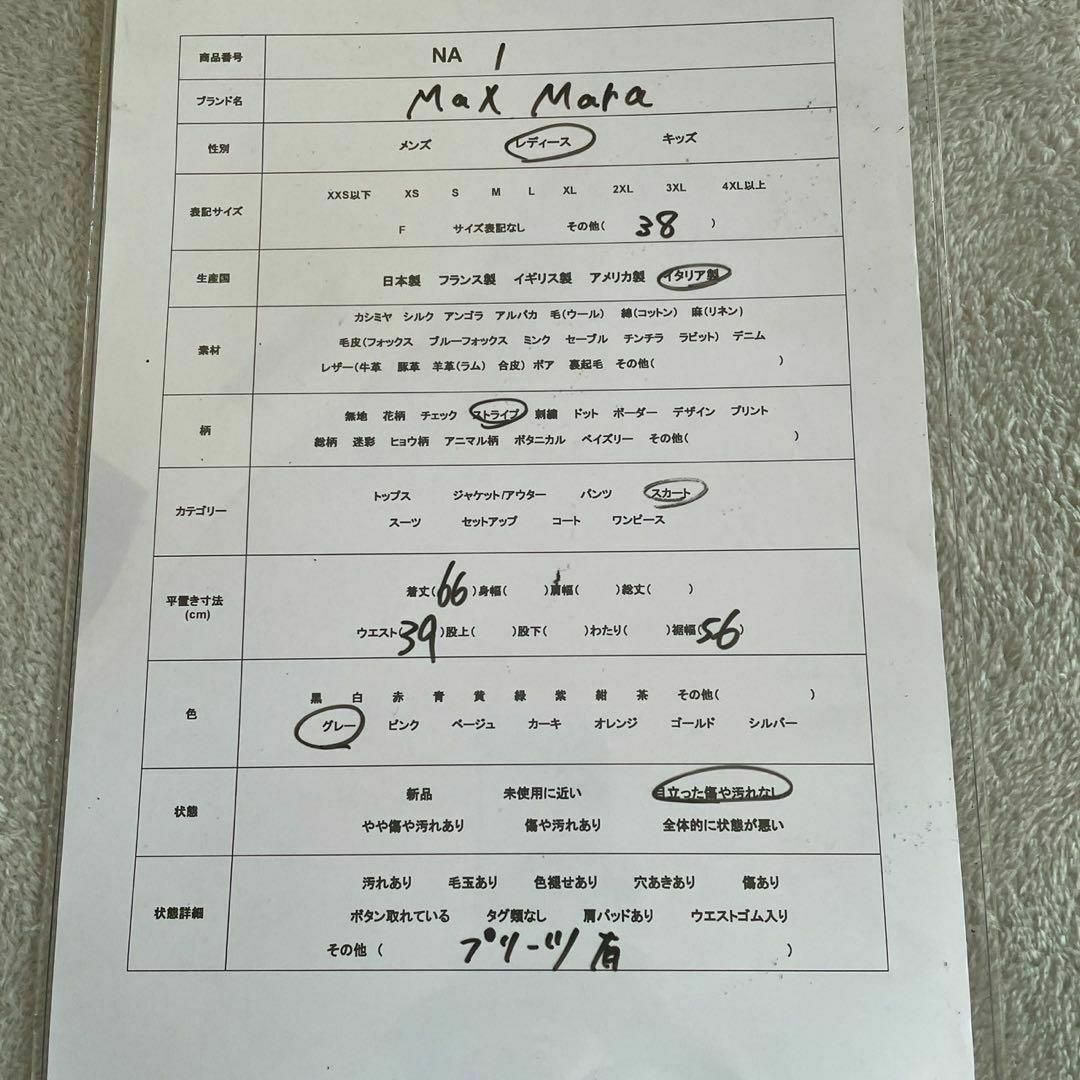 商品番号 NA 1
ブランド名 Max Mara
性別 メンズ レディース キッズ
表記サイズ XXS以下 XS S M L XL 2XL 3XL 4XL以上
F サイズ表記なし その他( 38 )
生産国 日本製 フランス製 イギリス製 アメリカ製 イタリア製
カシミヤ シルク アンゴラ アルパカ 毛(ウール) 綿(コットン) 麻(リネン)
素材 毛皮(フォックス ブルーフォックス ミンク セーブル チンチラ ラビット) デニム
レザー(牛革 豚革 羊革(ラム) 合皮) ボア 裏起毛 その他( )
柄 無地 花柄 チェック ストライプ 刺繍 ドット ボーダー デザイン プリント
総柄 迷彩 ヒョウ柄 アニマル柄 ボタニカル ペイズリー その他( )
カテゴリー トップス ジャケット/アウター パンツ スカート
スーツ セットアップ コート ワンピース
平置き寸法 着丈( 66 )身幅( )肩幅( )総丈( )
(cm) ウエスト( 39 )股上( )股下( )わたり( )裾幅( 56 )
色 黒 白 赤 青 黄 緑 紫 紺 茶 その他( )
グレー ピンク ベージュ カーキ オレンジ ゴールド シルバー
状態 新品 未使用に近い 目立った傷や汚れなし
やや傷や汚れあり 傷や汚れあり 全体的に状態が悪い
状態詳細 汚れあり 毛玉あり 色褪せあり 穴あきあり 傷あり
ボタン取れている タグ類なし 肩パッドあり ウエストゴム入り
その他 ( プリーツ 有 )